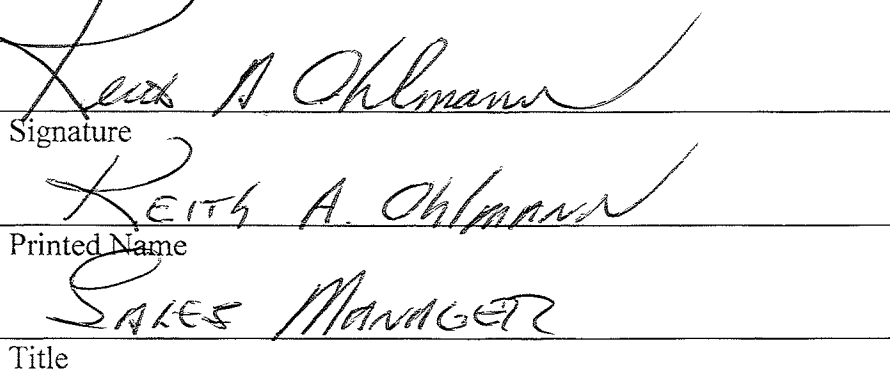 Keith A Ohlmann
Signature
KEITh A. OhlmANN
Printed Name
SALES MANAGER
Title